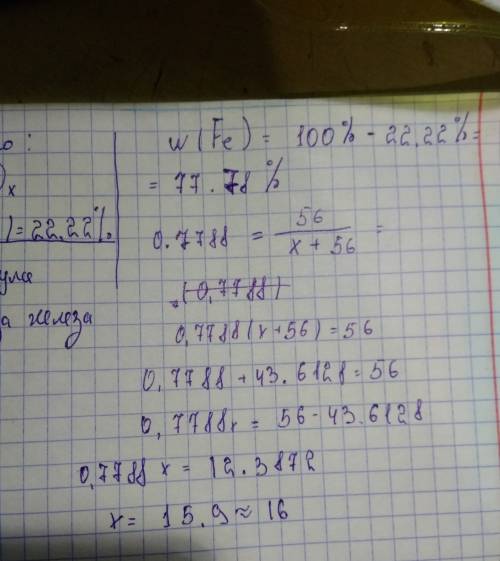 о:
w (Fe) = 100% - 22.22% =
)x
= 77.78%
) = 22.22%
0.7788 = 56 / x + 56 =
(0,7788)
а железа
0,7788(x+56) = 56
0,7788 + 43.6128 = 56
0,7788x = 56 - 43.6128
0,7788 x = 12.3872
x = 15.9 ≈ 16